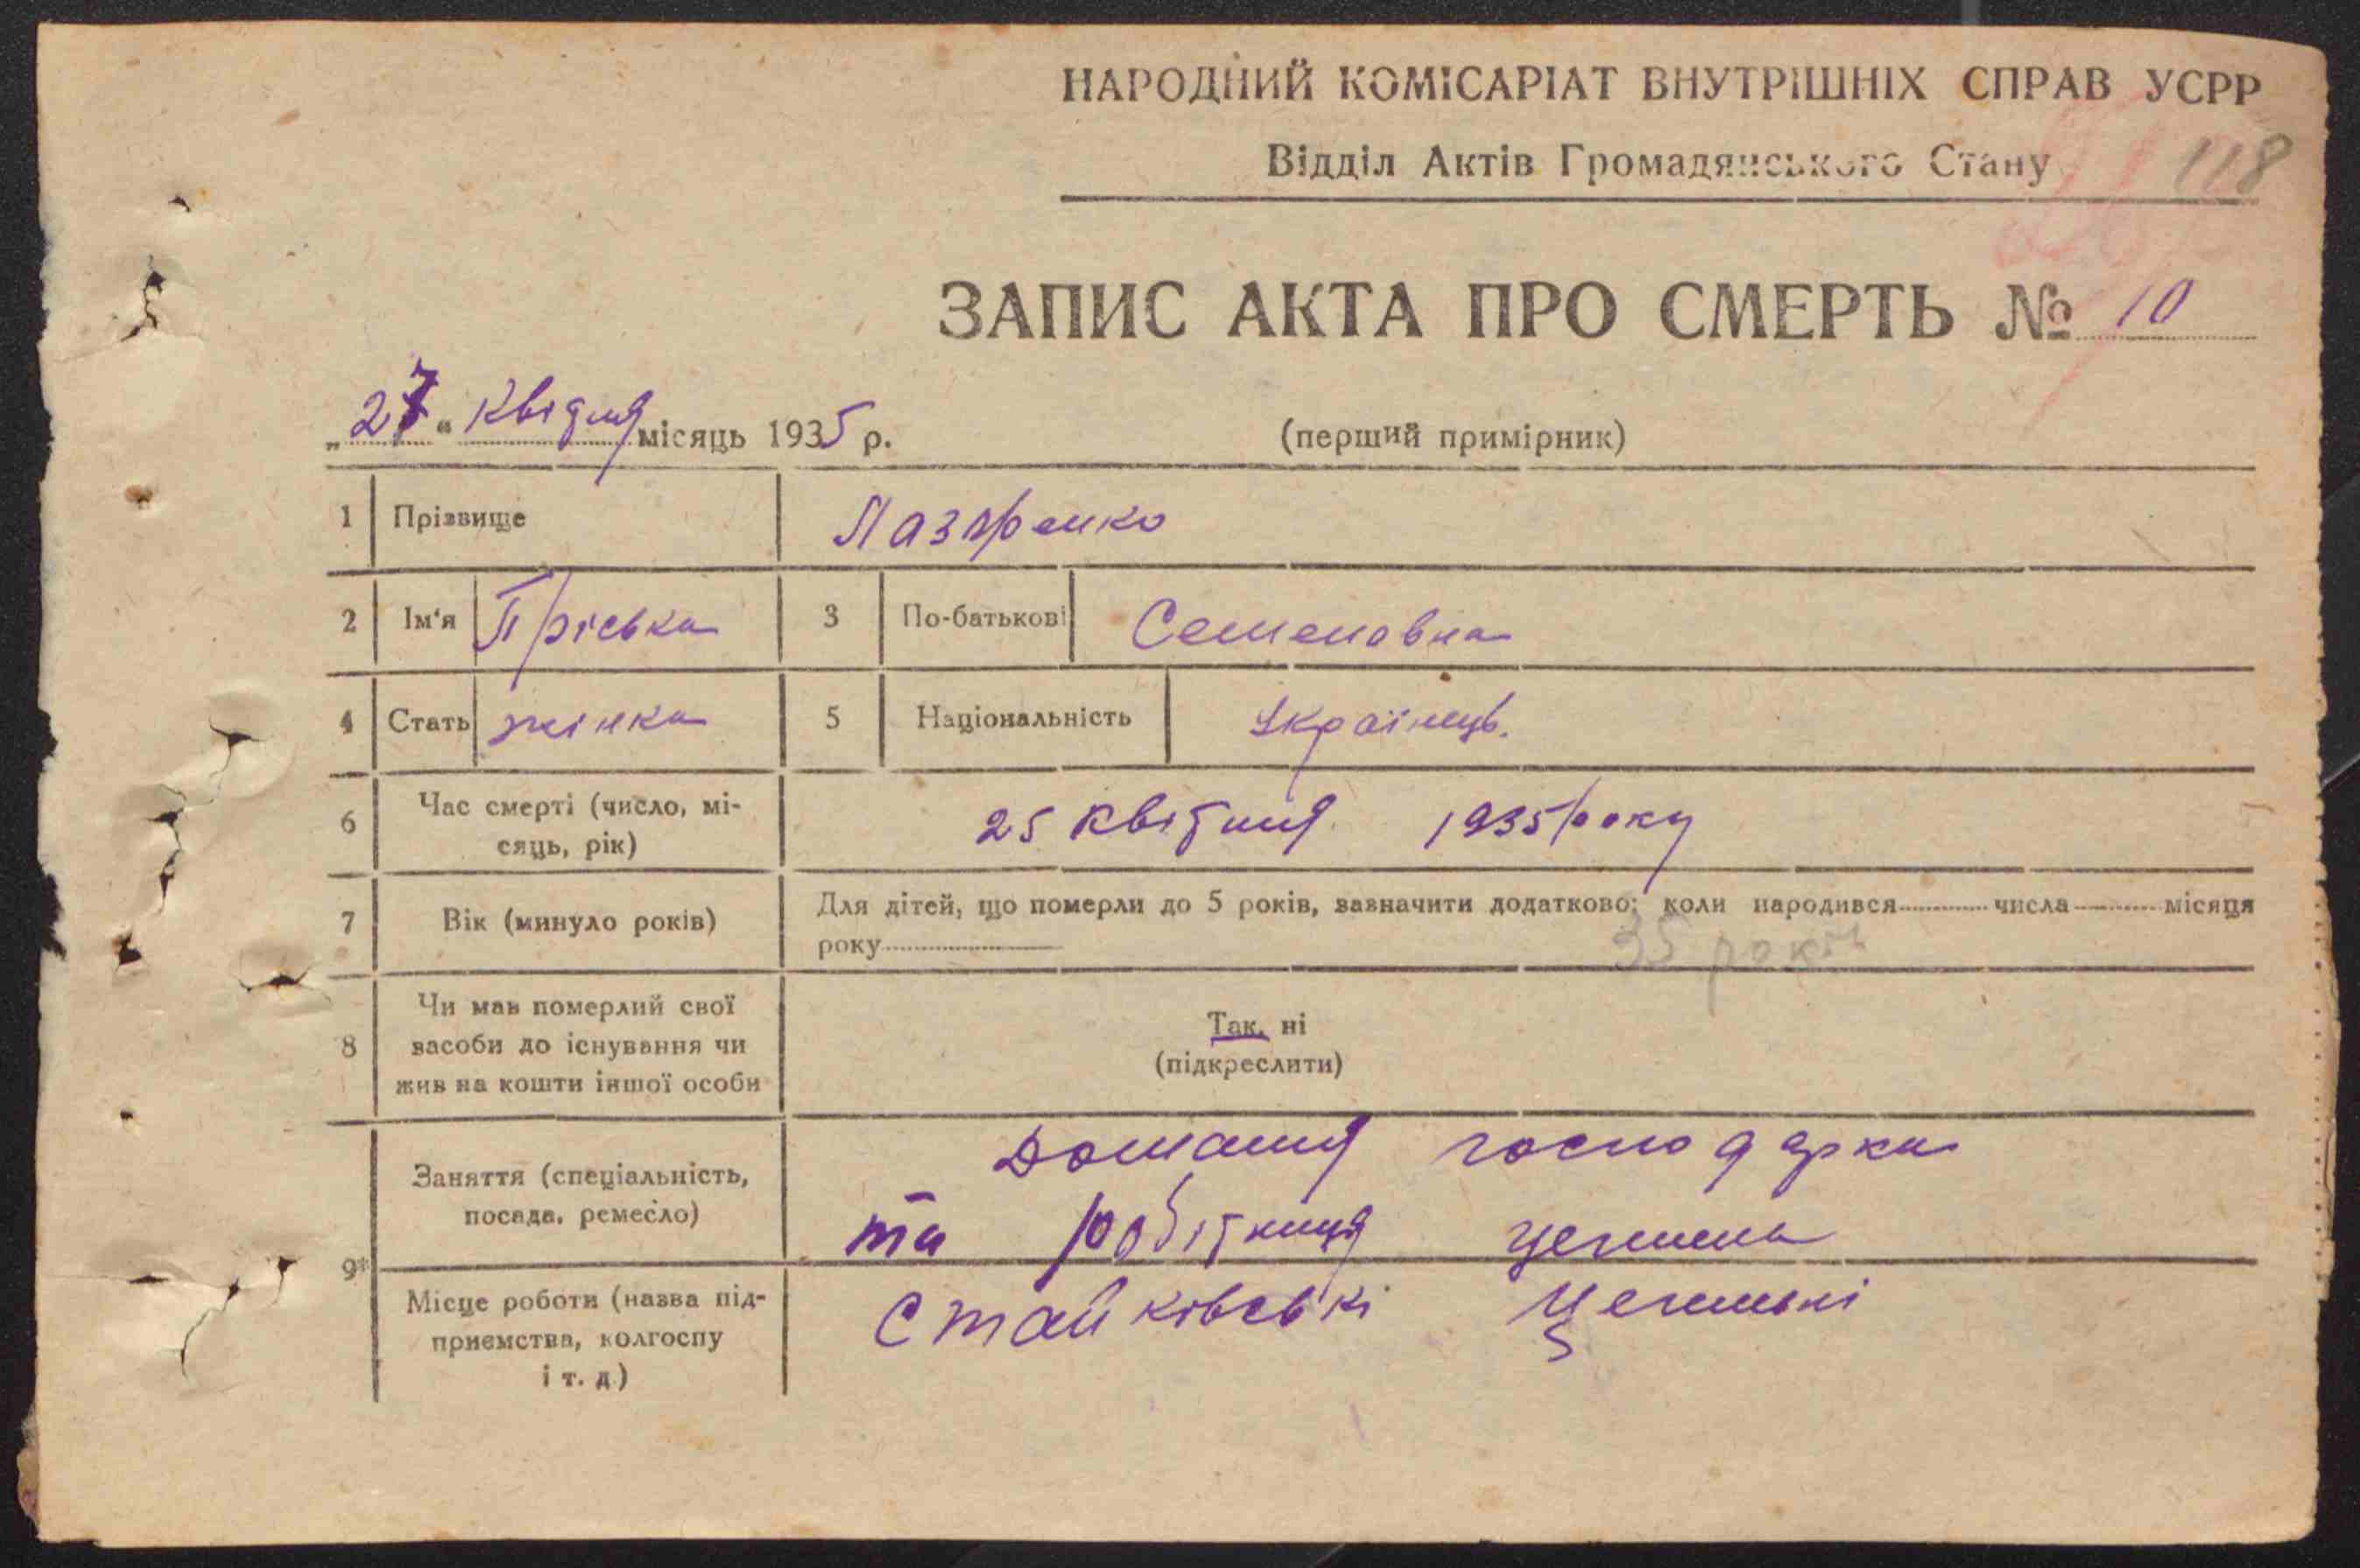 НАРОДНИЙ КОМІСАРІАТ ВНУТРІШНІХ СПРАВ УСРР
Відділ Актів Громадянського Стану 118
ЗАПИС АКТА ПРО СМЕРТЬ № 10
„27“ квітня місяць 1935 р. (перший примірник)
1 Прізвище Лазаренко
2 Ім'я Пріська 3 По-батькові Семеновна
4 Стать жінка 5 Національність Українець.
6 Час смерті (число, мі-
сяць, рік) 25 квітня 1935 року
7 Вік (минуло років) Для дітей, що померли до 5 років, зазначити додатково: коли народився числа місяця
року 35 років
8 Чи мав померлий свої
засоби до існування чи
жив на кошти іншої особи
Так, ні
(підкреслити)
9* Заняття (спеціальність,
посада, ремесло)
Домашня господарка
та робітниця цегельна
Місце роботи (назва під-
приємства, колгоспу
і т. д.)
Стайківські цегельні